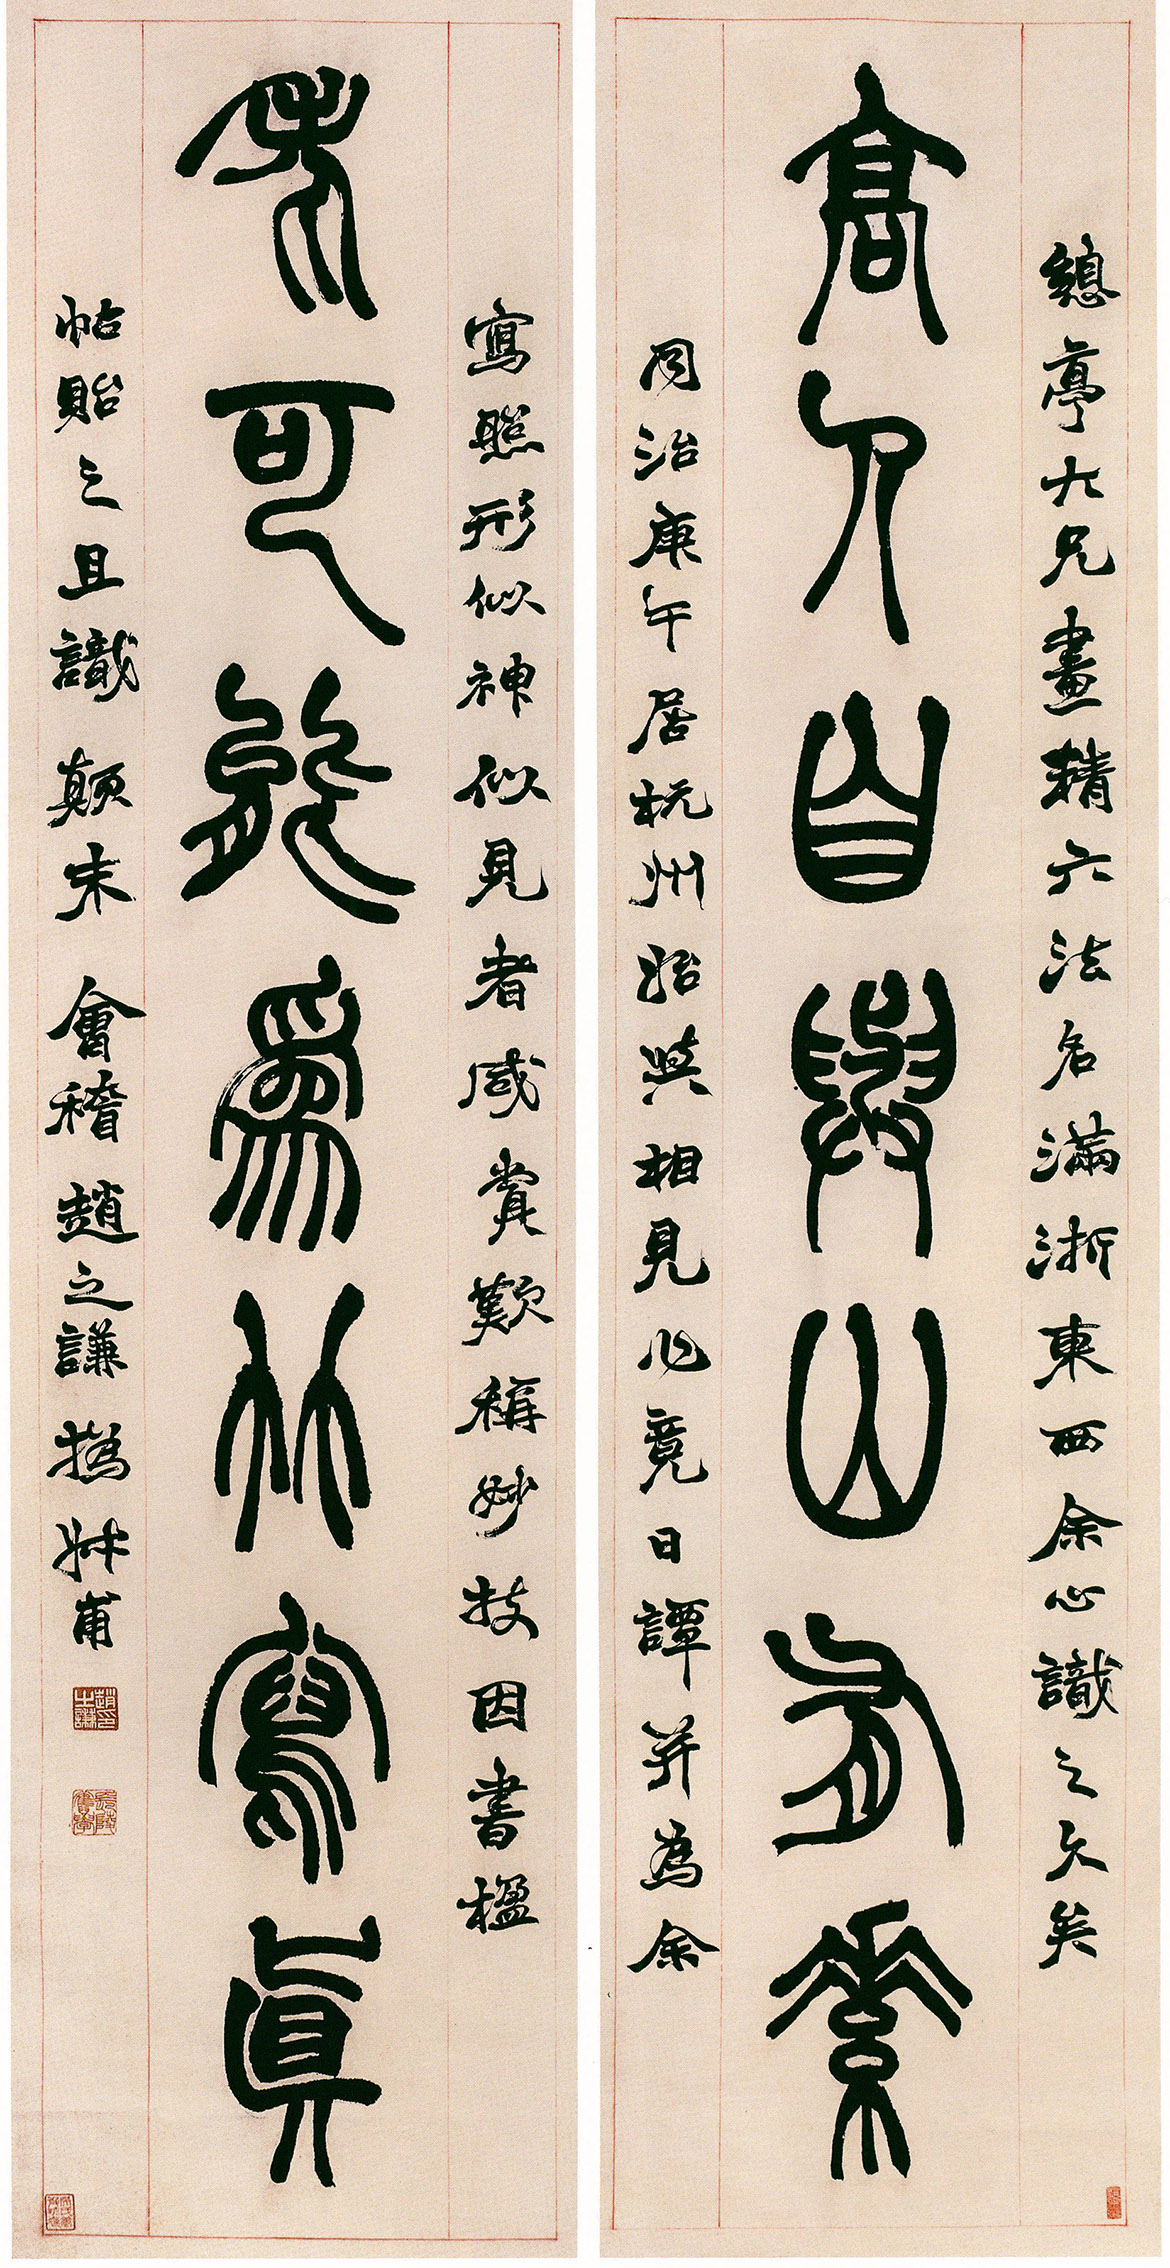 總亭大兄畫精六法名滿浙東西余心識之久矣
高人自與山有素
同治庚午居杭州始與相見必竟日譚并為余
寫照形似神似見者咸賞歎稱妙技因書楹
老可能為竹寫真
帖貽之且識 顛末 會稽趙之謙撝叔甫
趙之謙印